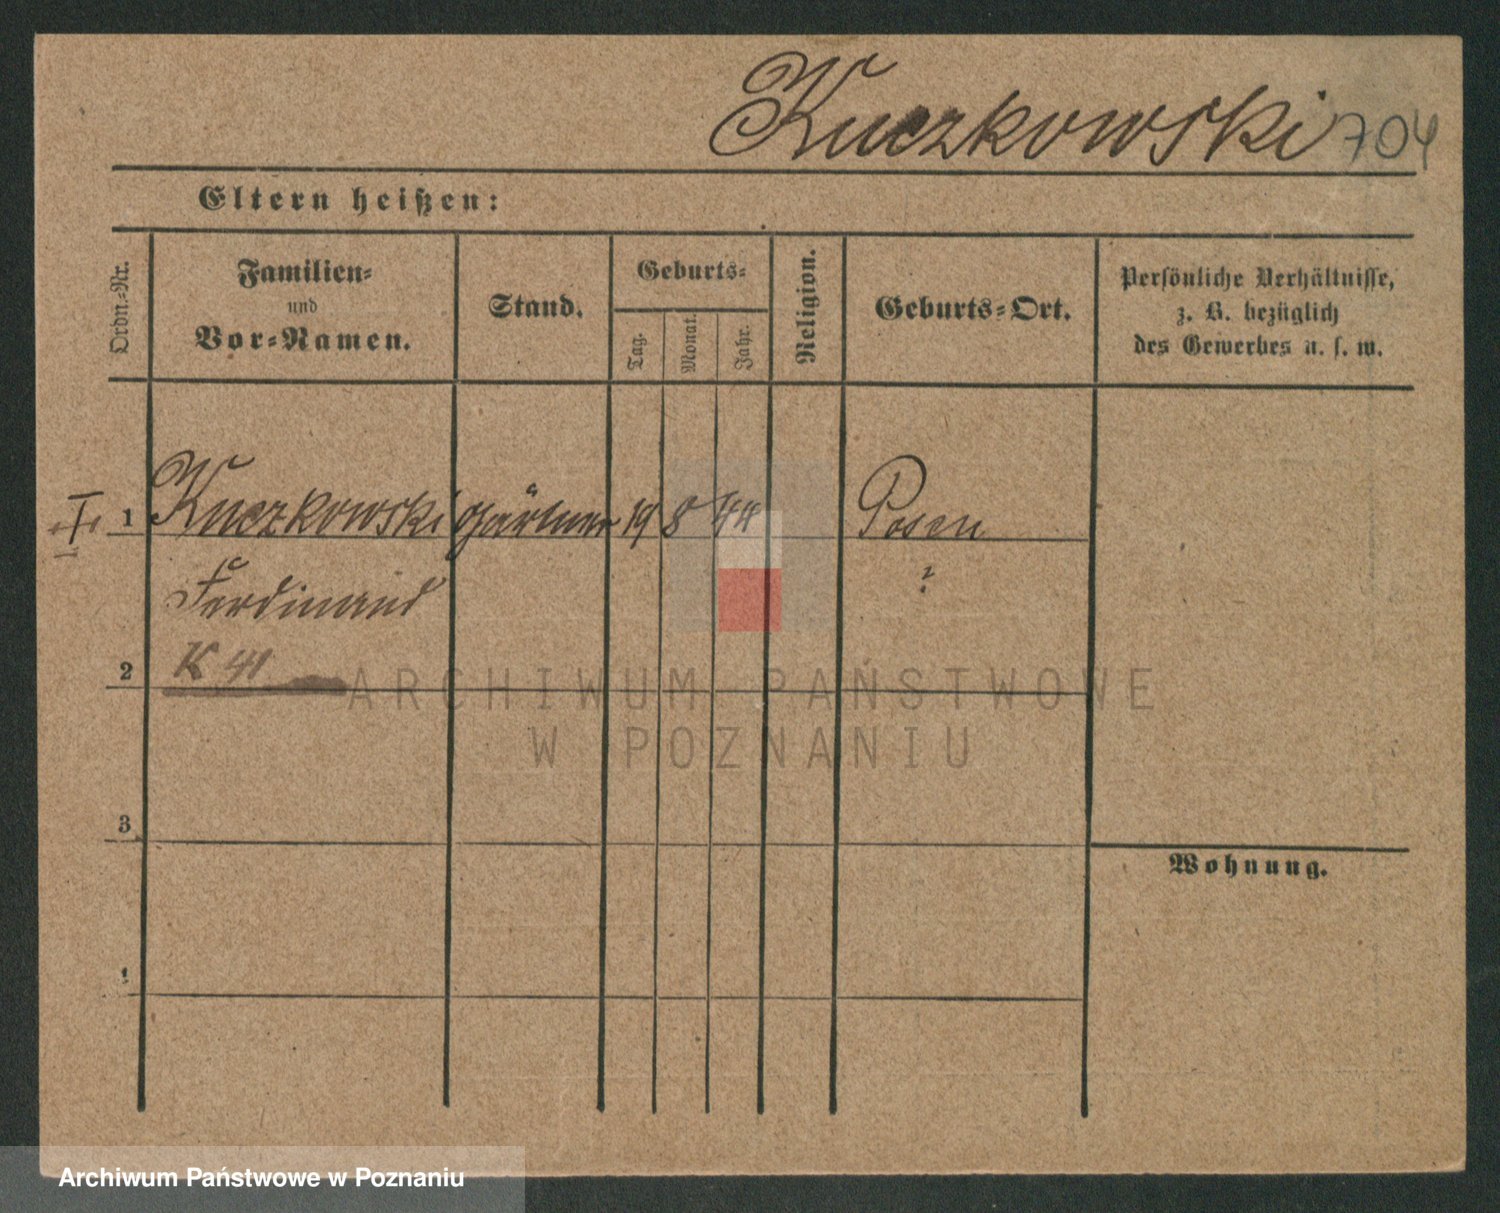 Kuczkowski 704
Eltern heißen:
Ordn.-Nr.
Familien-
und
Vor-Namen.
Stand.
Geburts-
Tag.
Monat.
Jahr.
Religion.
Geburts-Ort.
Persönliche Verhältnisse,
z. B. bezüglich
des Gewerbes u. s. w.
I 1 Kuczkowski Gärtner 19 8 44 Posen
Ferdinand ?
2 K 41
ARCHIWUM PAŃSTWOWE
W POZNANIU
3
Wohnung.
Archiwum Państwowe w Poznaniu